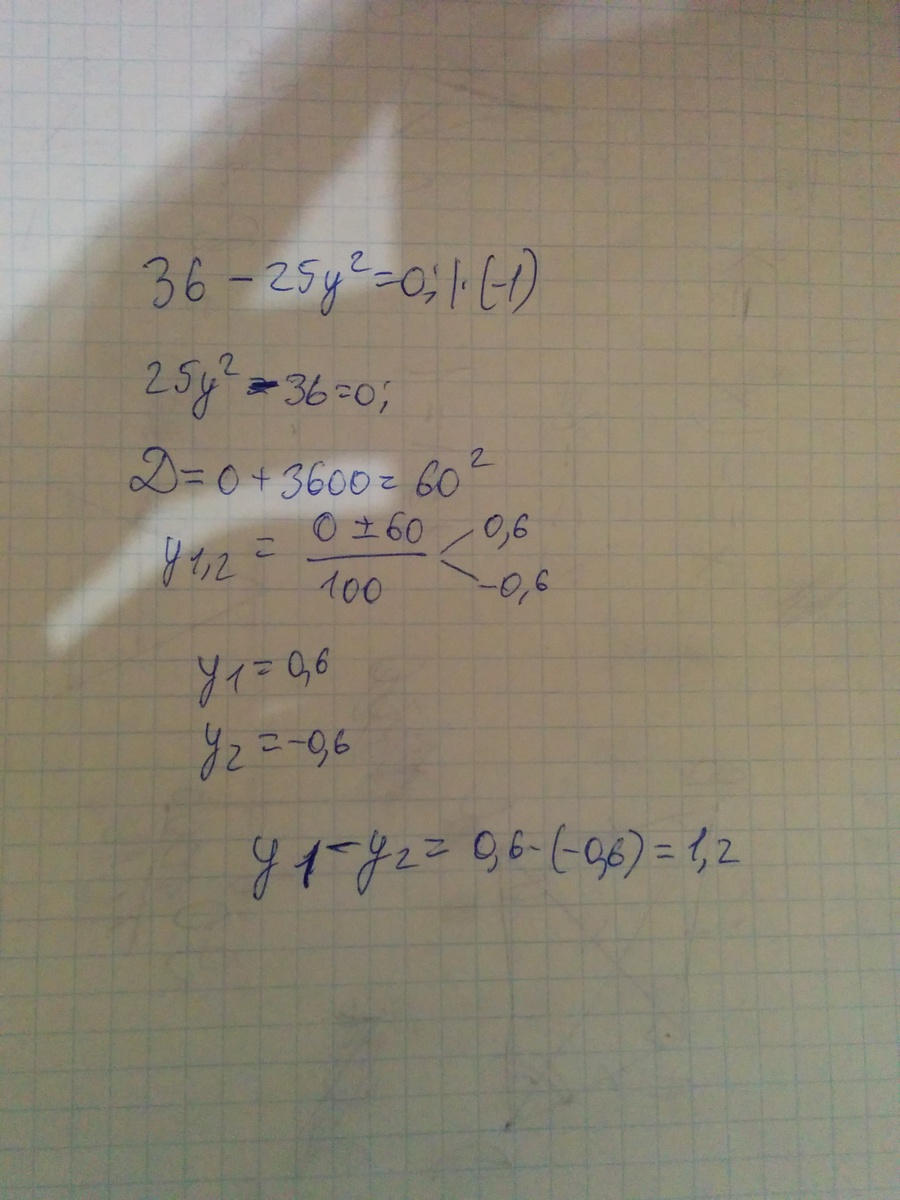 36 - 25y² = 0; | · (-1)
25y² - 36 = 0;
D = 0 + 3600 = 60²
y1,2 = (0 ± 60)/100 < 0,6 -0,6
y1 = 0,6
y2 = -0,6
y1 - y2 = 0,6 - (-0,6) = 1,2